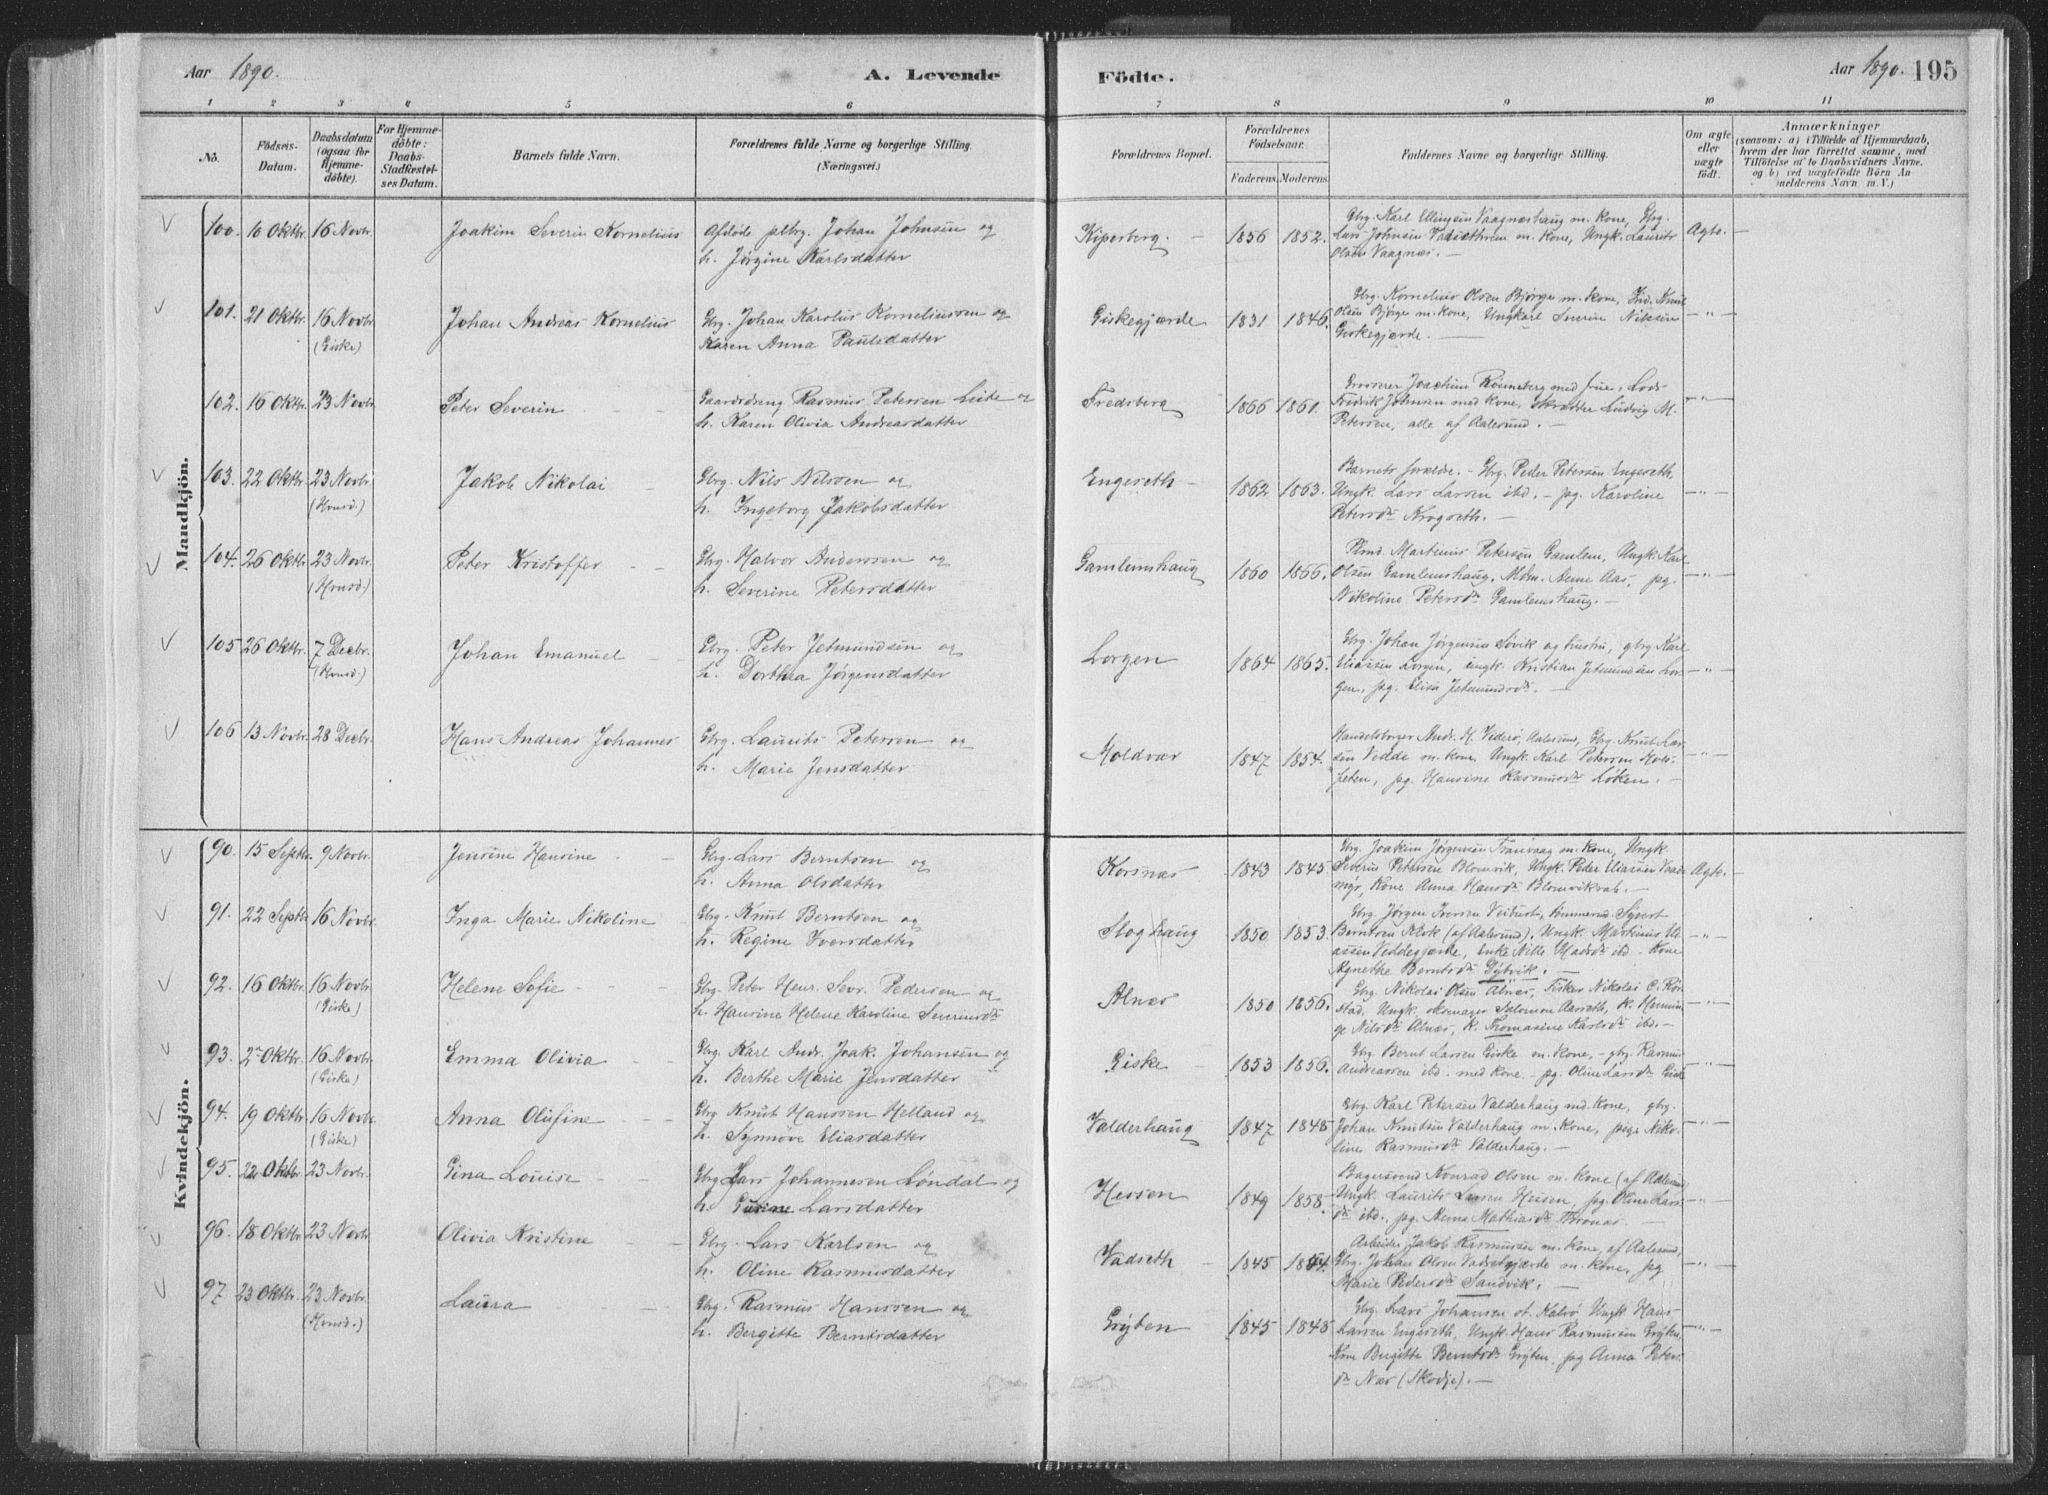 Aar 1890.
A. Levende
Födte.
Aar 1890.
195
1 2 3 4 5 6 7 8 9 10 11
No.
Födsels-
Datum.
Daabsdatum
(ogsaa for
Hjemme-
döbte).
For Hjemme-
döbte:
Daabs-
Stadfæstel-
ses Datum.
Barnets fulde Navn.
Forældrenes fulde Navne og borgerlige Stilling.
(Næringsvei.)
Forældrenes Bopæl.
Forældrenes
Födselsaar.
Faderens. Moderens.
Faddernes Navne og borgerlige Stilling.
Om ægte
eller
uægte
födt.
Anmærkninger
(saasom: a) i Tilfælde af Hjemmedaab,
hvem der har forrettet samme, med
Tilföielse af to Daabsvidners Navne,
og b) ved uægtefödte Börn An-
melderens Navn m. V.)
Mandkjön.
100. 10 Oktbr. 16 Novbr. Joakim Severin Kornelius Afdøde plbg. Johan Johnsen og
h. Jørgine Karlsdatter
Kiperberg. 1856 1852.
Gbrg. Karl Ellingsen Vaagneshaug m. kone, Gbrg.
Lars Johnsen m. kone, Ungk. Laurits
Olsen Vaagnes. —
Ægte. —
101. 21 Oktbr. 16 Novbr. (Giske) Johan Andreas Kornelius Gbrg. Johan Karolus Korneliussen og
Karen Anna Paulsdatter
Giskegjærde 1831 1846.
Gbrg. Kornelius Olsen Bjørge m. kone, Ind. Knut
Olsen Bjørge m. kone, Ungkarl Severin Nilsen
Giskegjærde. —
102. 16 Oktbr. 23 Novbr. Peter Severin Gaardsdreng Rasmus Petersen Lied og
h. Karen Olivia Andreasdatter
Fredsberg 1866 1861.
Grosserer Joachim Rönneberg med frue, Lods
Fredrik Johnsen med kone, Skrædder Ludvig M.
Petersen, alle af Aalesund. —
103. 22 Oktbr. 23 Novbr. (Hovsd.) Jakob Nikolai Gbrg. Nils Nilssen og
h. Ingeborg Jakobsdatter
Engeseth 1862 1863.
Barnets forælde. — Gbrg. Peder Petersen Engeseth,
Ungk. Lars Larsen ibd. — pg. Karoline
Petersdr. Krogseth. —
104. 26 Oktbr. 23 Novbr. (Hovsd.) Peter Kristoffer Gbrg. Halvor Anderssen og
h. Severine Petersdatter
Gamlemshaug 1860 1866.
Plmd. Martinus Petersen Gamlem, Ungk. Karl
Olsen Gamlemshaug, Mdm. Anne Aas, pg.
Nikoline Petersdr. Gamlemshaug. —
105 26 Oktbr. 7 Decbr. (Hovsd.) Johan Emanuel Gbrg. Peter Jetmundsen og
h. Dorthea Jørgensdatter
Lorgen 1864 1865.
Gbrg. Johan Jørgensen Søvik og hustru, gbrg. Karl
Eliassen Lorgen, ungk. Kristian Jetmundsen Lor-
gen, pg. Elise Jetmundsdr. —
106 13 Novbr. 28 Decbr. Hans Andreas Johannes Gbrg. Laurits Petersen og
h. Marie Jensdatter
Moldvær 1847 1854.
Handelsborger Andr. H. Viderø, Aalesund, Gbrg. Knut Lar-
sen Vedde m. kone, Ungk. Karl Petersen Hols-
feten, pg. Hansine Rasmusdr. Løken. —
Kvindekjön.
90. 15 Septbr. 9 Novbr. Jensine Hansine Gbrg. Lars Berntsen og
h. Anna Olsdatter
Korsnæs 1843 1845
Gbrg. Joakim Jørgensen Tranvaag m. kone, Ungk.
Severin Petersen Blomvik, Ungk. Peter Eliassen Vaad-
myr, Kone Anna Hansdr. Blomvikvab. —
Ægte. —
91. 22 Septbr. 16 Novbr. Inga Marie Nikoline Gbrg. Knut Berntsen og
h. Regine Iversdatter
Sloghaug 1850 1853.
Gbrg. Jørgen Iversen Veibust, tømmermd. Sivert
Berntsen Klok (af Aalesund), Ungk. Martinus
Veddegjerde, enke Nille Madsdr. ibd. — Kone
Agnethe Berntsdr. Gytvik. —
92. 16 Oktbr. 16 Novbr. (Giske) Helene Sofie Gbrg. Peter Henr. Sevr. Pedersen og
h. Hansine Helene Karoline Severinsdr.
Alnæs 1850 1856.
Gbrg. Nikolai Olsen Alnæs, Fisker Nikolai C. Kor-
stad, Ungk. skomager Salomon Aarseth, k. Hemin-
ge Nilsdr. Alnæs, k. Thomasine Karlsdr. ibd. —
93. 2 Oktbr. 16 Novbr. (Giske) Emma Olivia Gbrg. Karl Andr. Joak. Johansen og
h. Berthe Marie Jensdatter
Giske 1853 1856.
Gbrg. Bernt Larsen Giske m. kone, — gbrg. Rasmus
Andreassen ibd. med kone. — pg. Oline Larsdr. Giske
94. 19 Oktbr. 16 Novbr. (Giske) Anna Olufine Gbrg. Knut Hanssen Helland og
h. Synnøve Eliasdatter
Valderhaug 1847 1848
Gbrg. Karl Petersen Valderhaug md. kone, gbrg.
Johan Knutsen Valderhaug m. kone, pige Niko-
line Rasmusdr. Valderhaug. —
95. 22 Oktbr. 23 Novbr. Gina Louise Gbrg. Lars Johannesen Løndal og
h. Gurine Larsdatter
Hessen 1849 1858.
Bagersvend Konrad Olsen m. kone (af Aalesund)
Ungk. Laurits Larsen Hessen, pg. Oline Lars-
dr. ibd., pg. Anna Mathiasdr. —
96. 18 Oktbr. 23 Novbr. Olivia Kristine Gbrg. Lars Karlsen og
h. Oline Rasmusdatter
Vadseth 1845 1854.
Arbeider Jakob Rasmussen m. kone, af Aalesund,
Gbrg. Johan Olsen Vadsethgjærde m. kone, pg.
Marie Pedersdr. Sandvik. —
97 23 Oktbr. 23 Novbr. (Hovsd.) Laura Gbrg. Rasmus Hanssen og
h. Bergitte Berntsdatter
Gryten 1845 1848
Gbrg. Lars Johansen st. Kalvø, Ungk. Hans
Larsen Engeseth, Ungk. Hans Rasmussen Gryten,
Kone Bergitte Berntsdr. Gryten, pg. Anna Peters-
dr. Nær (Skodje). —